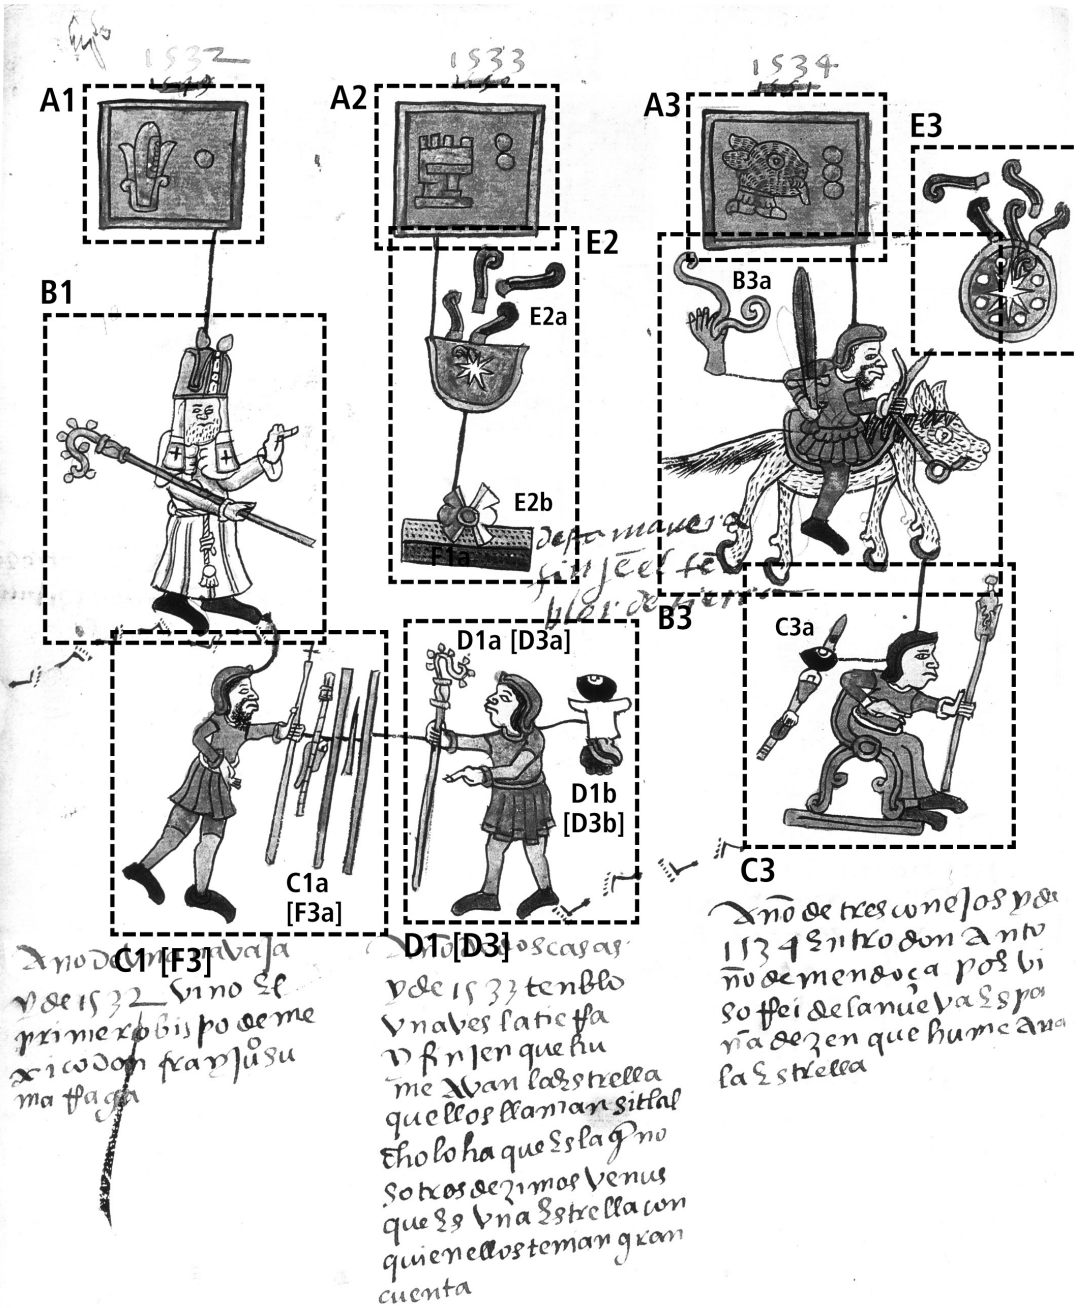 1532
1533
1534
A1
A2
A3
E3
B1
E2
E2a
B3a
E2b
F1a
desta manera
finjē el tē
blor de tierra
B3
C3a
D1a [D3a]
D1b
[D3b]
C1a
[F3a]
C3
C1 [F3]
D1 [D3]
y de 1532 vino El
primer obispo de me
xico don fray juo su
marraga
Año de dos casas
y de 1533 tenblo
vna ves la tierra
y finjen que hu
me avan la Estrella
que llos llaman sitlal
choloha que Es la q̄ no
sotros dezimos venus
que Es vna Estrella con
quien ellos teman gran
cuenta
Año de tres conejos y de
1534 Entro don Anto
ño de mendoça por vi
so rrei de la nueva Espa
ña dezen que hume Ana
la Estrella